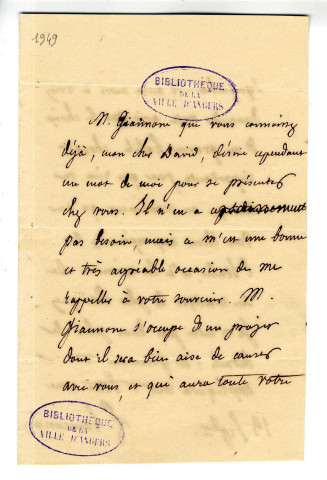 1949
BIBLIOTHÈQUE
DE LA
VILLE D'ANGERS
M. Giannone que vous connaissez
déjà, mon cher David, désire cependant
un mot de moi pour se présenter
chez vous. Il n'en a
pas besoin, mais ce m'est une bonne
et très agréable occasion de me
rappeller à votre souvenir. M.
Giannone s'occupe d'un projet
dont il sera bien aise de causer
avec vous, et qui aura toute votre
BIBLIOTHÈQUE
DE LA
VILLE D'ANGERS